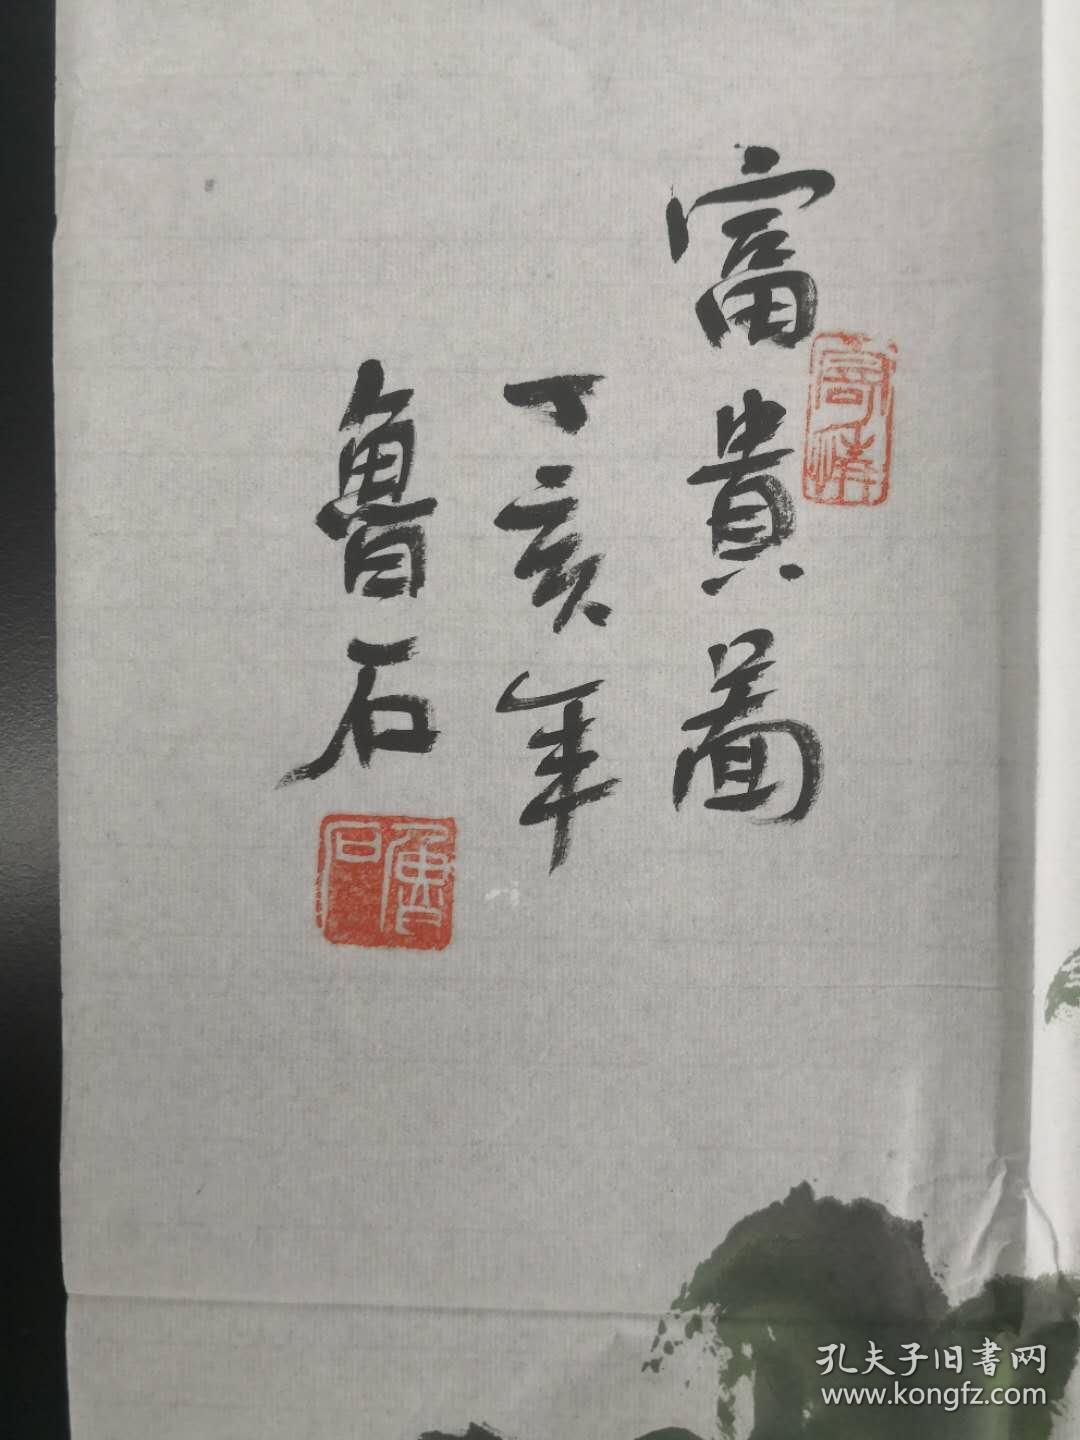 富貴圖
丁亥年
魯石
寄情
魯石
孔夫子旧書网
www.kongfz.com